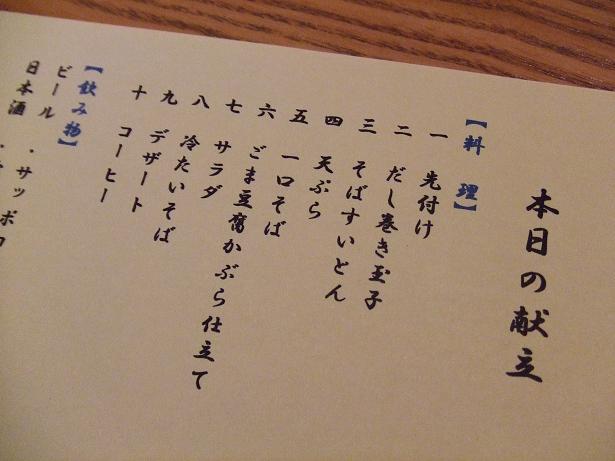 本日の献立
【料理】
一 先付け
二 だし巻き玉子
三 そばすいとん
四 天ぷら
五 一口そば
六 ごま豆腐かぶら仕立て
七 サラダ
八 冷たいそば
九 デザート
十 コーヒー
【飲み物】
ビール ・サッポロ
日本酒